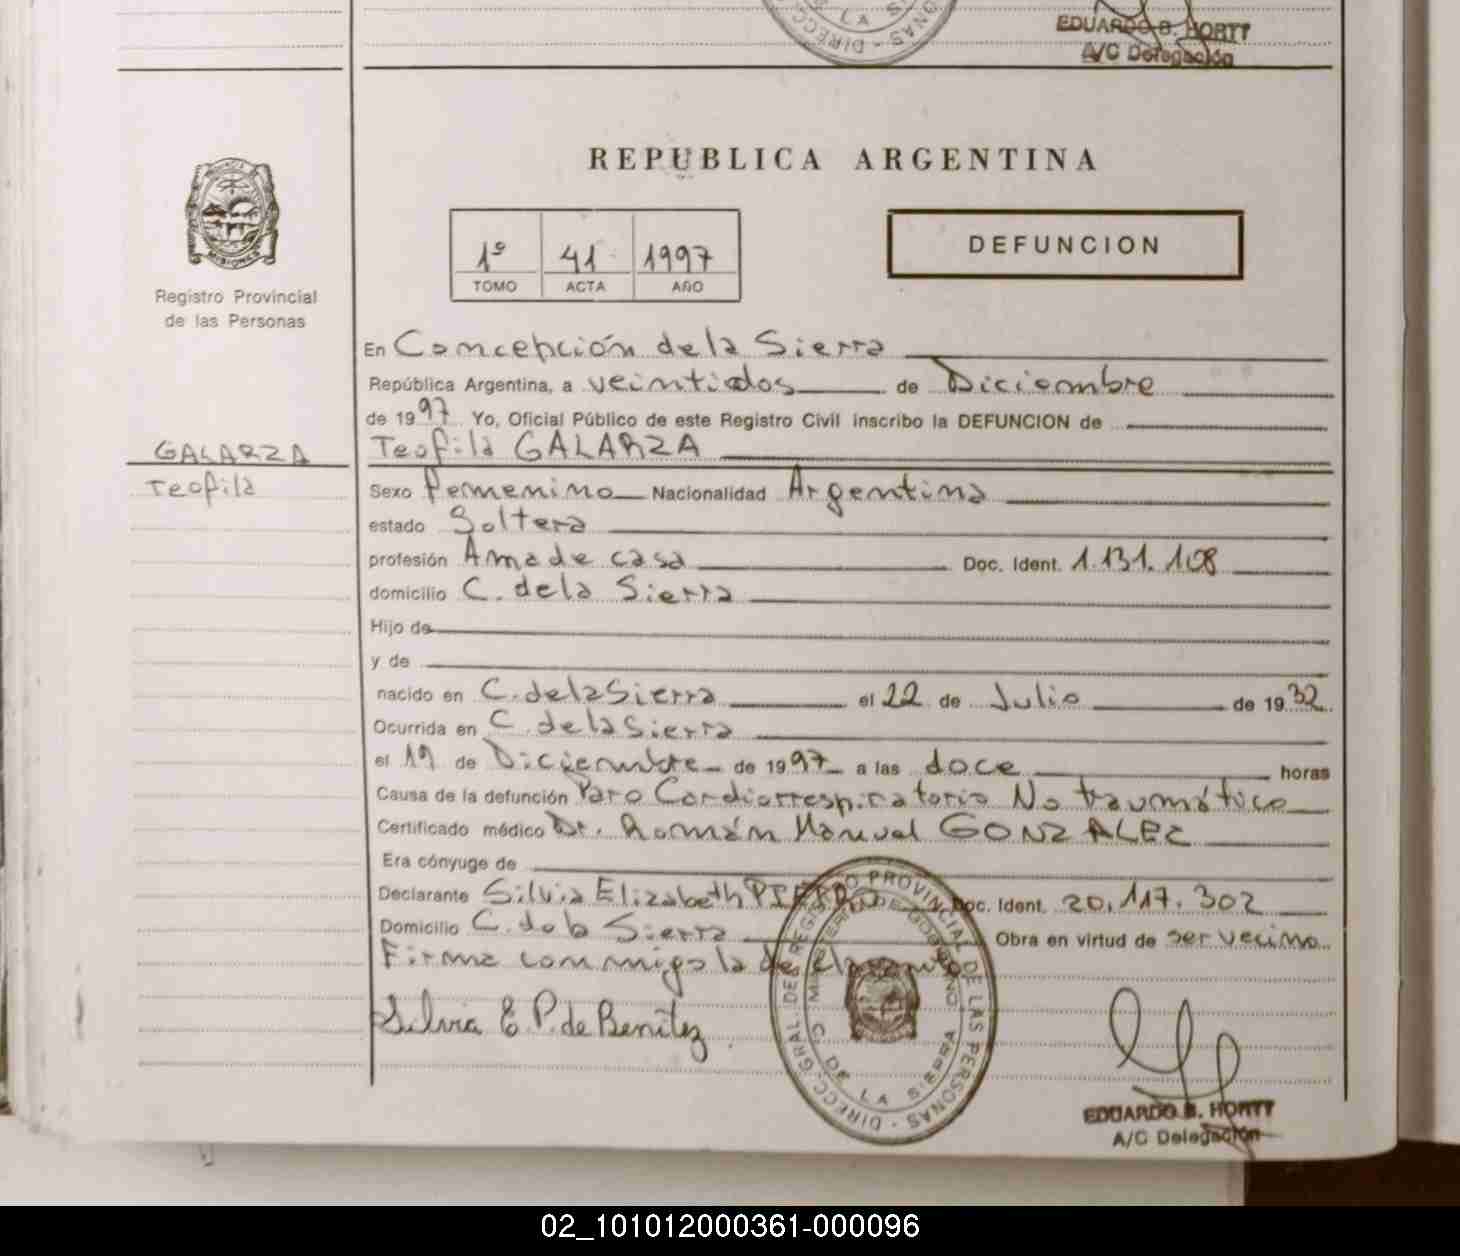 EDUARDO B. HORTT
A/C Delegación
REPUBLICA ARGENTINA
1º 41 1997
TOMO ACTA AÑO
DEFUNCION
MISIONES
Registro Provincial
de las Personas
En Concepción de la Sierra
República Argentina, a veintidos de Diciembre
de 1997 Yo, Oficial Público de este Registro Civil inscribo la DEFUNCION de
Teofila GALARZA
GALARZA
Teofila
Sexo Femenino Nacionalidad Argentina
estado Soltera
profesión Ama de casa Doc. Ident. 1.131.108
domicilio C. de la Sierra
Hijo de
y de
nacido en C. de la Sierra el 22 de Julio de 1932
Ocurrida en C. de la Sierra
el 19 de Diciembre de 1997 a las doce horas
Causa de la defunción Paro Cardiorrespiratorio No traumático
Certificado médico Dr. Román Manuel GONZALEZ
Era cónyuge de
Declarante Silvia Elizabeth Doc. Ident. 20.117.302
Domicilio C. de la Sierra Obra en virtud de ser vecino
Firma conmigo la declarante
Silvia E P. de Benitez
DIRECC. GRAL. DEL REGISTRO PROVINCIAL DE LAS PERSONAS
MINISTERIO DE GOBIERNO
C. DE LA SIERRA
EDUARDO B. HORTT
A/C Delegación
02_101012000361-000096